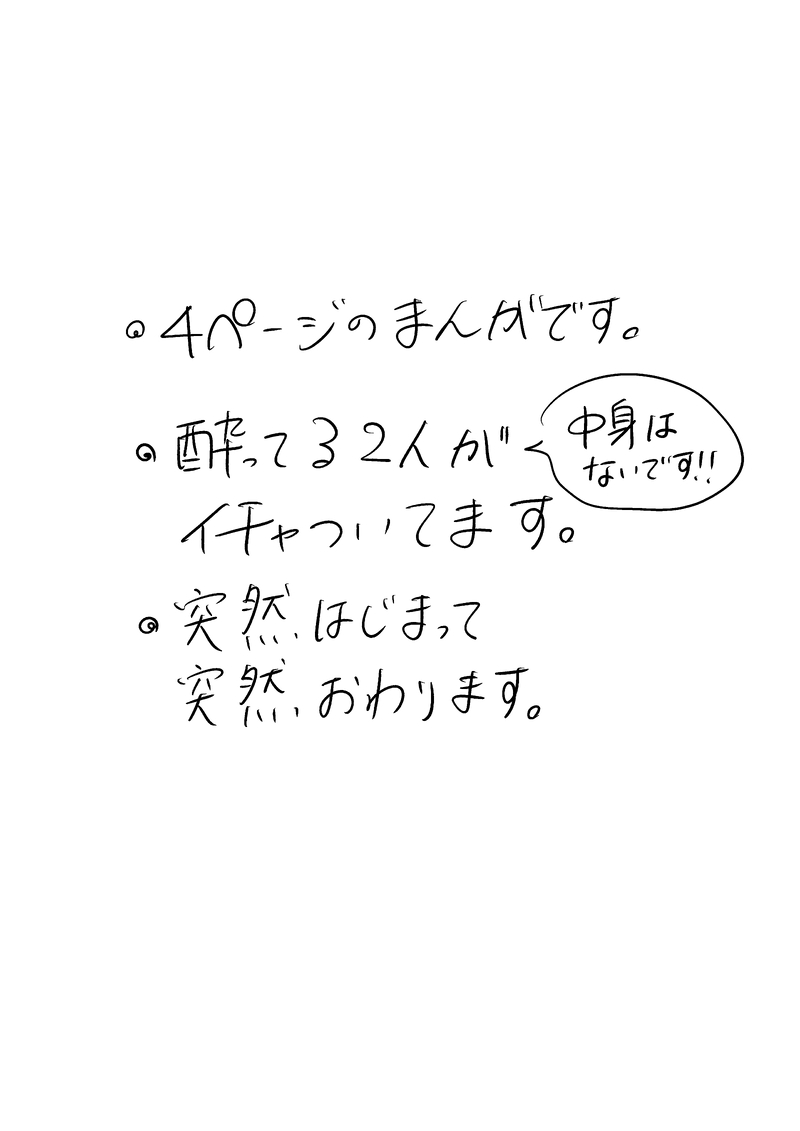 ・4ページのまんがです。
・酔ってる2人が
イチャついてます。
中身は
ないです!!
・突然はじまって
突然おわります。